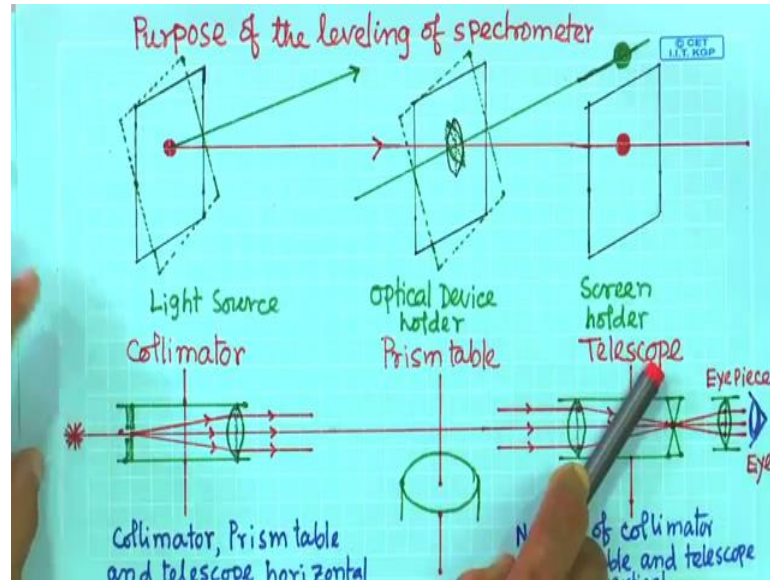 Purpose of the leveling of spectrometer
© CET
I.I.T. KGP
Light Source
Optical Device
holder
Screen
holder
Collimator
Prism table
Telescope
Eyepiece
Eye
Collimator, Prism table
and telescope horizontal
of collimator
and telescope